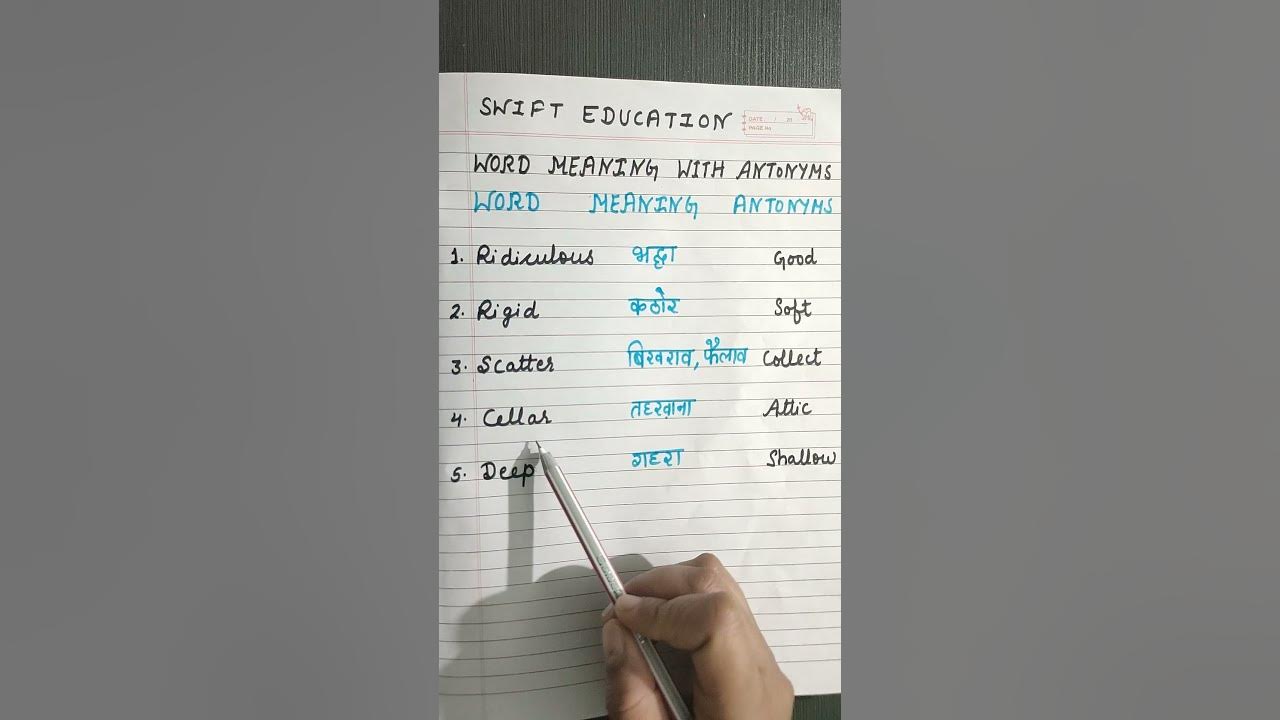 SWIFT EDUCATION
DATE / 20
PAGE No
WORD MEANING WITH ANTONYMS
WORD MEANING ANTONYMS
1. Ridiculous भद्दा Good
2. Rigid कठोर Soft
3. Scatter बिखराव, फैलाव Collect
4. Cellar तहख़ाना Attic
5. Deep गहरा Shallow